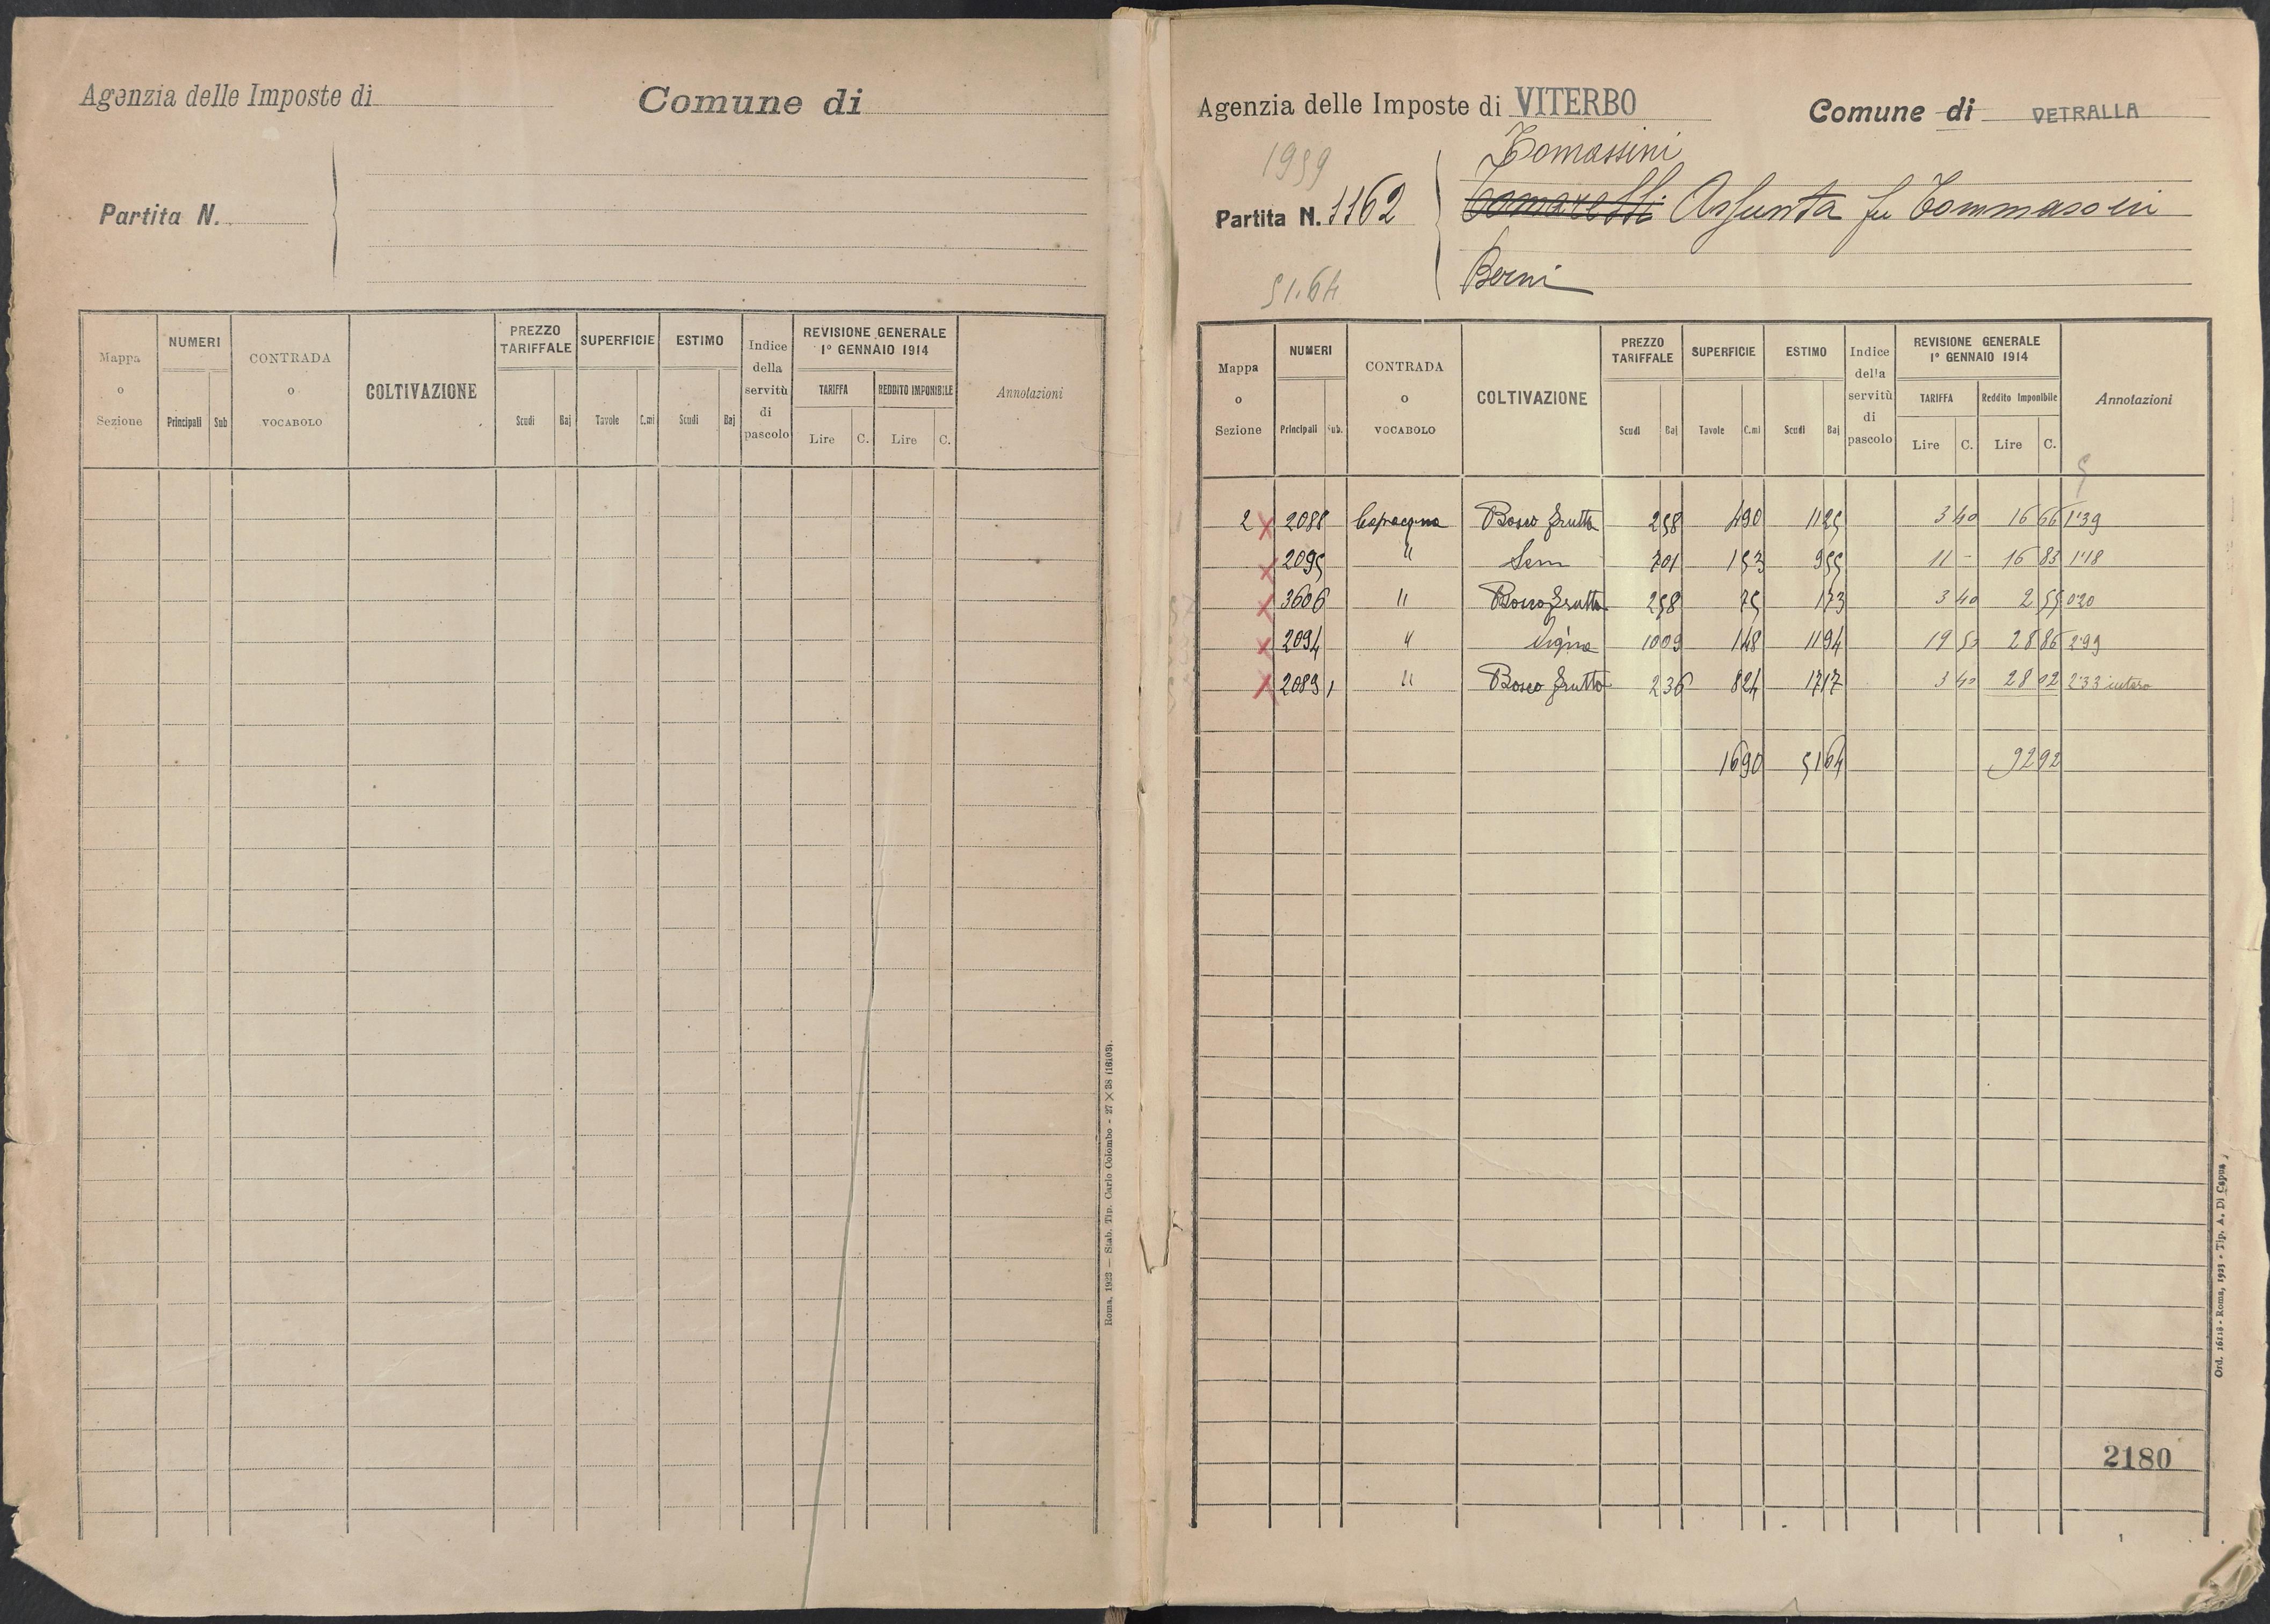 Agenzia delle Imposte di
Comune di
Partita N.
Mappa o Sezione
NUMERI
Principali Sub
CONTRADA o VOCABOLO
COLTIVAZIONE
PREZZO TARIFFALE
Scudi Baj
SUPERFICIE
Tavole C.mi
ESTIMO
Scudi Baj
Indice della servitù di pascolo
REVISIONE GENERALE
1° GENNAIO 1914
TARIFFA
Lire C.
REDDITO IMPONIBILE
Lire C.
Annotazioni
Roma, 1923 — Stab. Tip. Carlo Colombo - 27 X 38 (16103).
Agenzia delle Imposte di VITERBO
Comune di VETRALLA
1959
Tomassini
Partita N. 1162
Assunta fu Tommaso in
Berni
51.64
Mappa o Sezione
NUMERI
Principali Sub.
CONTRADA o VOCABOLO
COLTIVAZIONE
PREZZO TARIFFALE
Scudi Baj
SUPERFICIE
Tavole C.mi
ESTIMO
Scudi Baj
Indice della servitù di pascolo
REVISIONE GENERALE
1° GENNAIO 1914
TARIFFA
Lire C.
Reddito Imponibile
Lire C.
Annotazioni
2 x 2088 Bosco frutto 2 58 4 90 11 25 3 40 16 66 1.39
x 2095 " Sem 1 53 9 55 11 - 16 83 1.18
x 3606 " Bosco frutto 2 58 75 1 73 3 40 2 55 0.20
x 2094 " Vigna 10 09 1 48 11 94 19 50 28 86 2.99
x 2089 1 " Bosco frutto 2 36 8 24 17 17 3 40 28 02 2.33 intero
16 90 51 64 92 92
2180
Ord. 16118 - Roma, 1923 - Tip. A. Di Capua